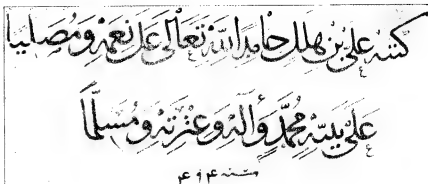 كتبه علي بن هلل حامدا لله تعالى على نعمه ومصليا
على نبيه محمد وآله وعترته ومسلما
سنه